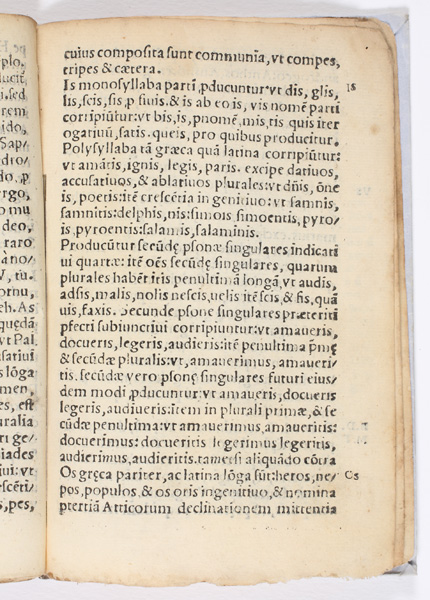 cuius composita sunt communia, vt compes,
tripes & cætera.
Is monosyllaba partī ꝓducuntur vt dīs, glis,
lis, scis, sis, p siuis. & is ab eo is, vis nomē partī
corripiūtur: vt bis, is, pnomē, mis, tis quis iter
ogatiuū, satis. queis, pro quibus producitur.
Polysyllaba tā græca quā latina corripiūtur:
vt amātis, ignis, legis, paris. excipe datiuos,
accusatiuos, & ablatiuos plurales: vt dn̄is, ōne
is, poetis: itē crescētia in genitiuo: vt samnis,
samnitis: delphis, nis: simois simoentis, pyro/
is pyroentis: salamis, salaminis.
Producūtur secūdę psonæ singulares indicati
ui quartæ: itē oēs secūdę singulares, quarum
plurales habēt itis penultimā longā, vt audis,
adsis, malis, nolis nescis, velis itē scis, & fis, quā
uis, faxis. Secunde psone singulares præteriti
pfecti subiunctiui corripiuntur: vt amaueris,
docueris, legeris, audieris: itē penultima p̄mę
& secūdæ pluralis: vt, amauerimus, amaueri/
tis. secūdæ vero psonę singulares futuri eius/
dem modi ,ꝓducuntur: vt amaueris, docueris
legeris, audiueris: item in plurali primæ, & se
cūdæ penultima: vt amauerimus, amaueritis:
docuerimus: docueritis legerimus legeritis,
audierimus, audieritis. tametsi aliquādo cōtra
Os gręca pariter, ac latina lōga sūt: heros, ne/
pos, populos. & os oris ingenitiuo, & nomina
ptertiā Atticorum declinationem mittentia
is
Os